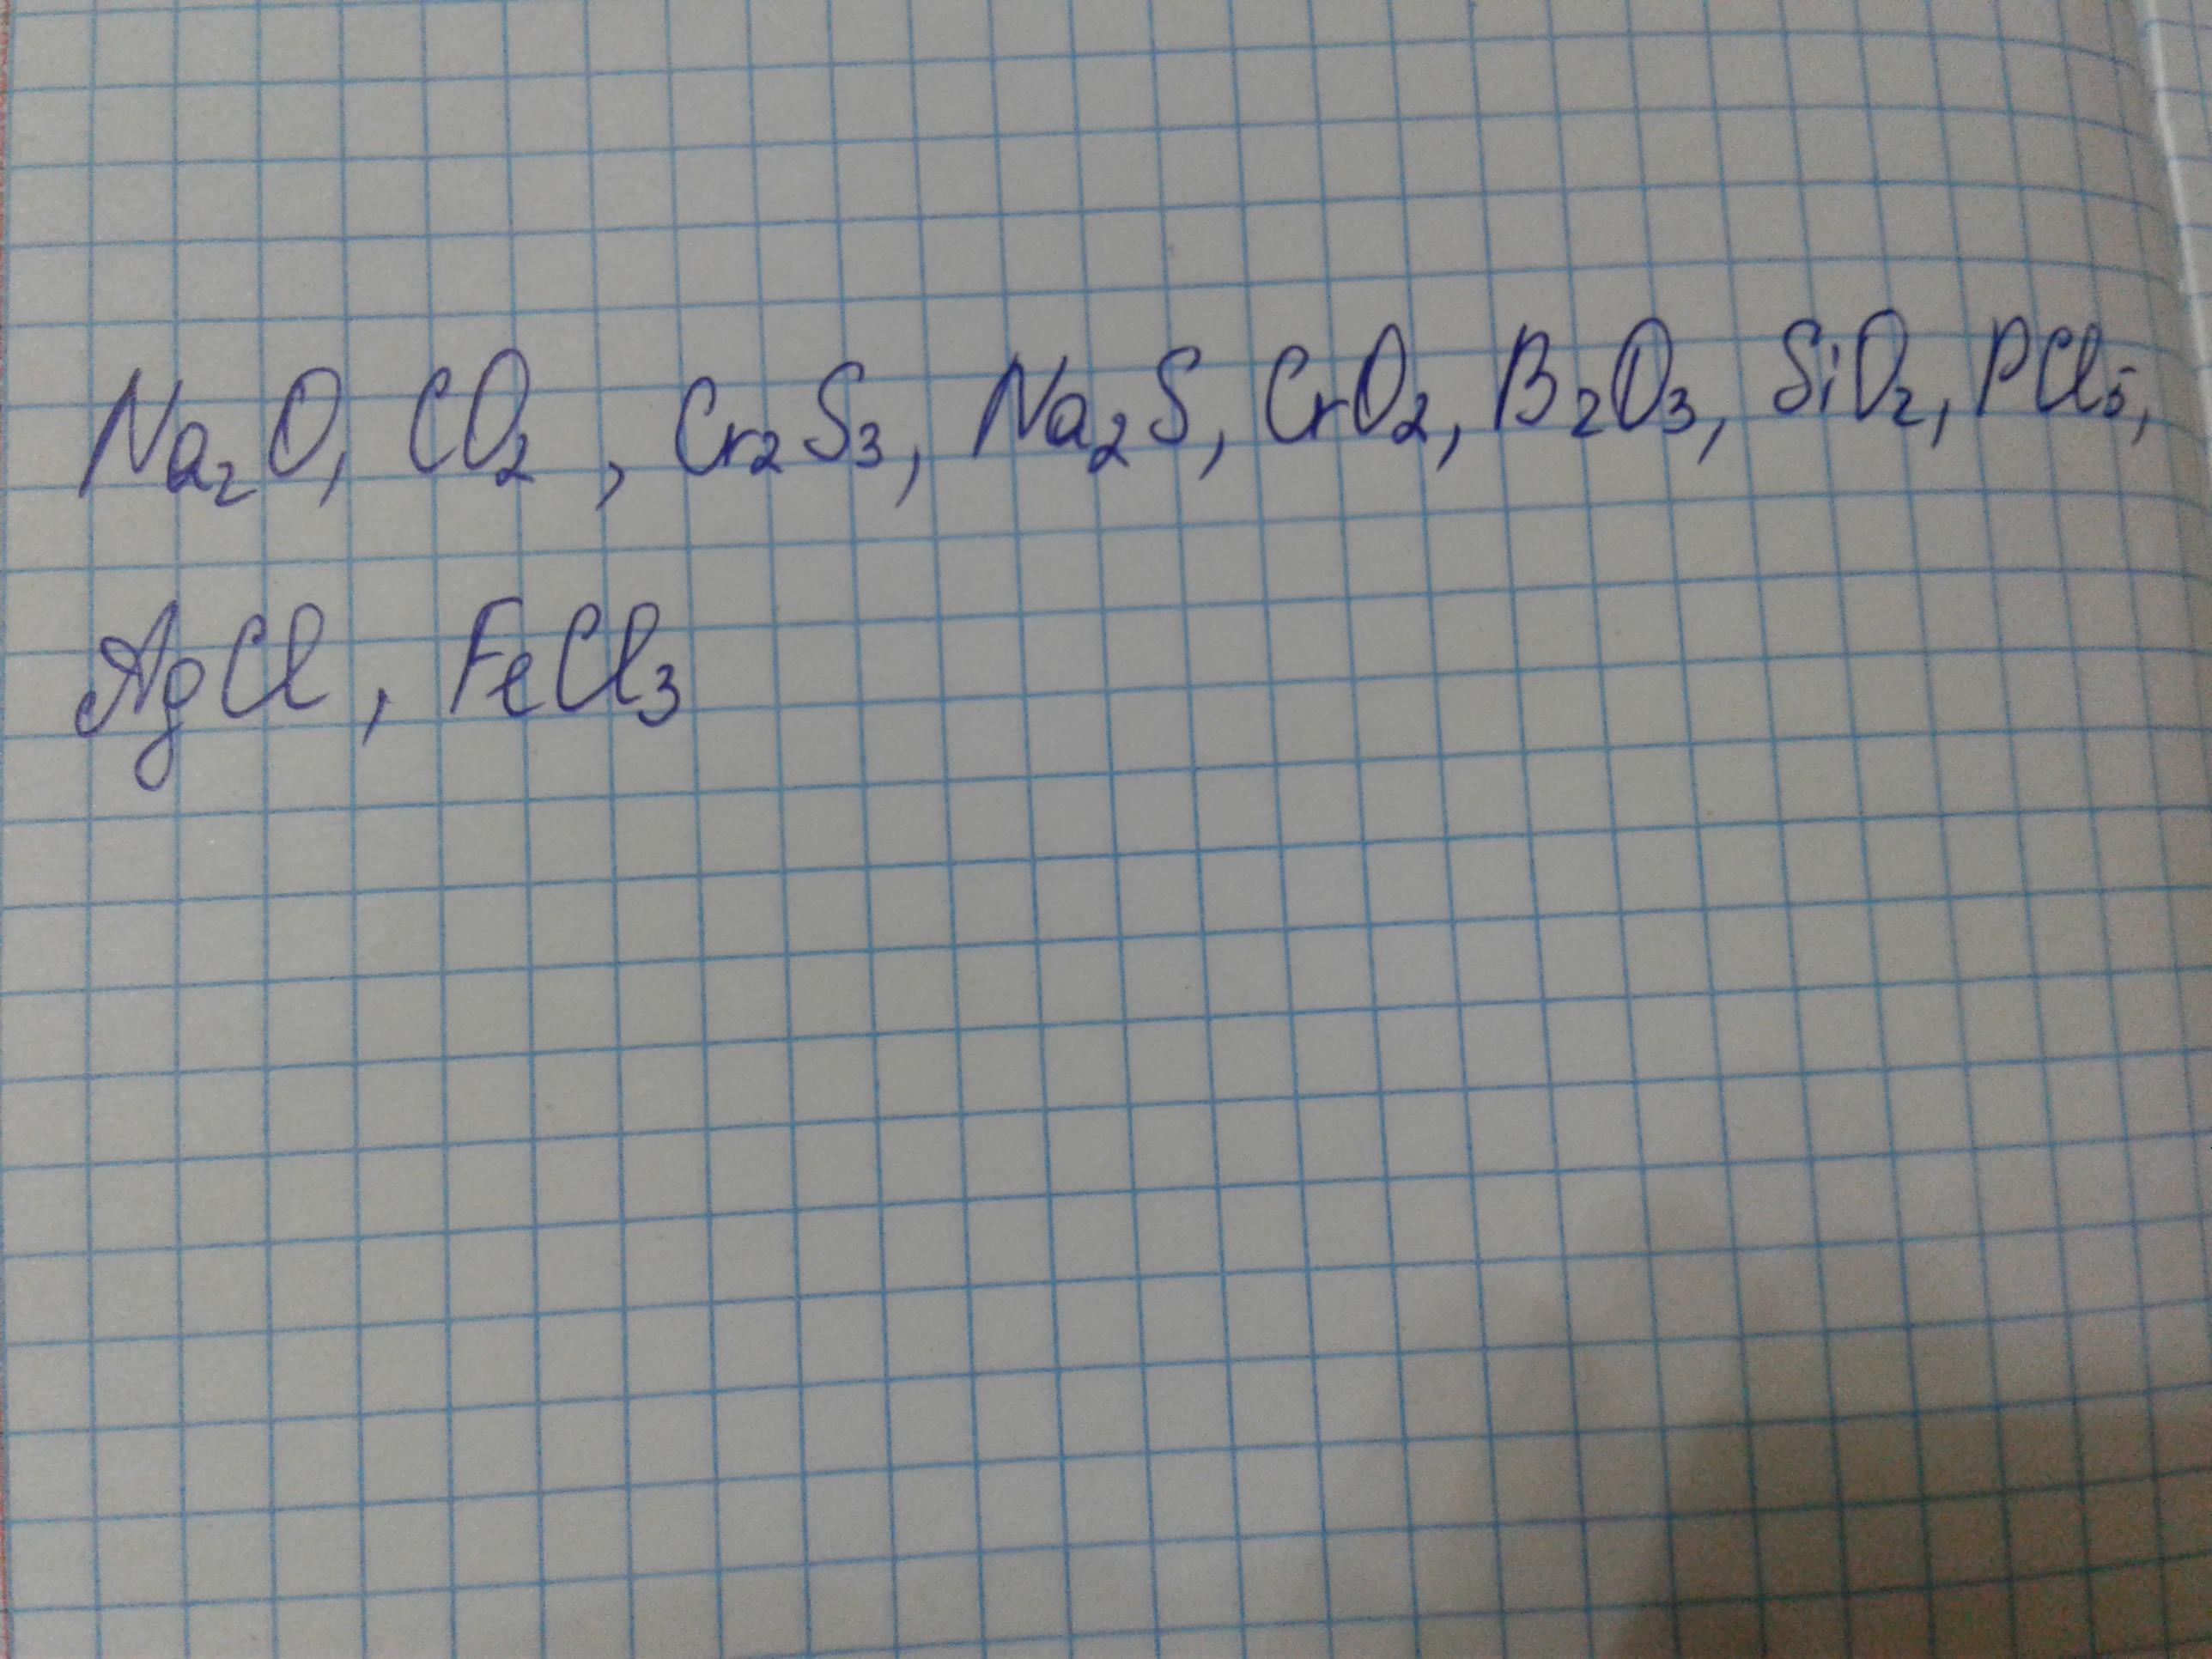 Na₂O, CO₂, Cr₂S₃, Na₂S, CrO₂, B₂O₃, SiO₂, PCl₅,
AgCl, FeCl₃